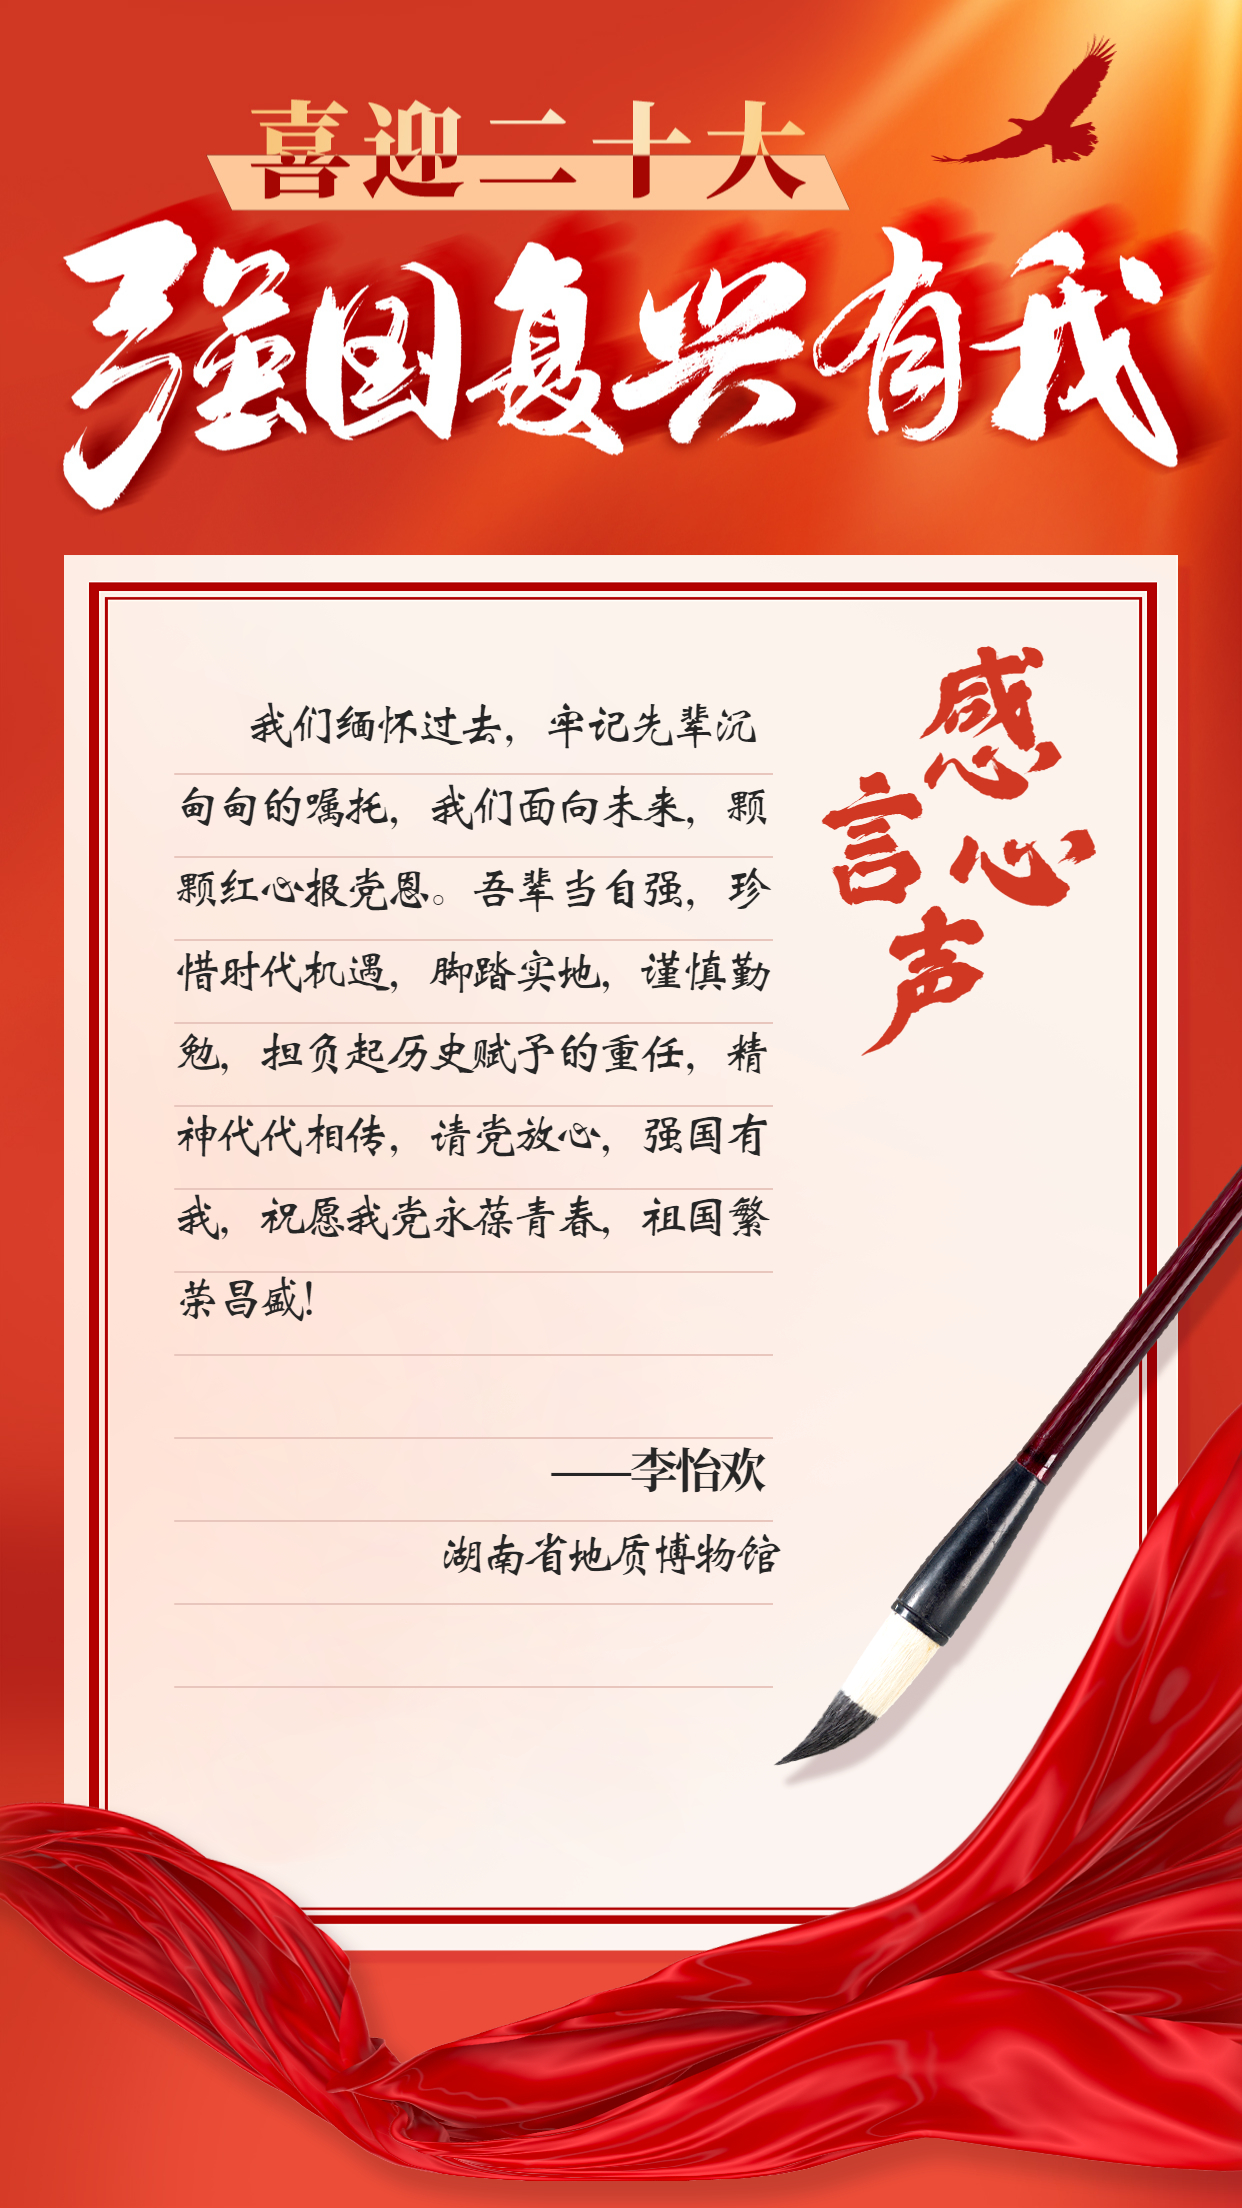 喜迎二十大
强国复兴有我
感言心声
我们缅怀过去，牢记先辈沉
甸甸的嘱托，我们面向未来，颗
颗红心报党恩。吾辈当自强，珍
惜时代机遇，脚踏实地，谨慎勤
勉，担负起历史赋予的重任，精
神代代相传，请党放心，强国有
我，祝愿我党永葆青春，祖国繁
荣昌盛！
——李怡欢
湖南省地质博物馆